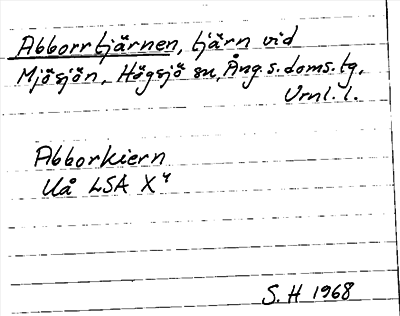 Abborrtjärnen, tjärn vid
Mjösjön, Högsjö sn, Ång. s. doms. tg,
Vrnl. l.
Abborkiern
Uå LSA X4
S. H 1968